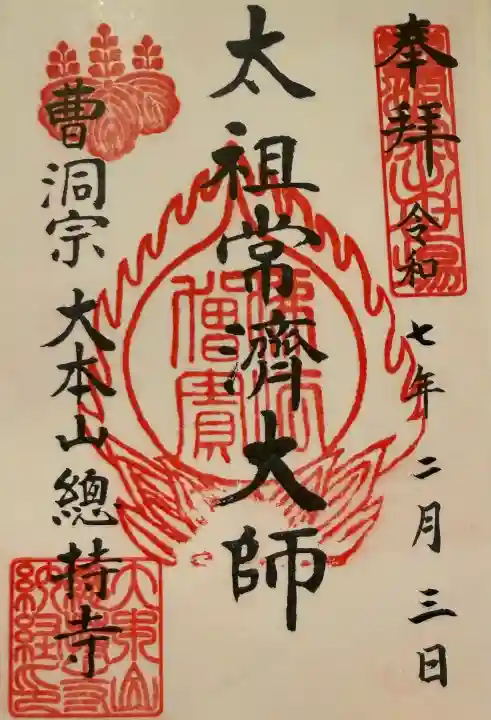 奉拝 令和七年二月三日
太祖常濟大師
曹洞宗 大本山總持寺